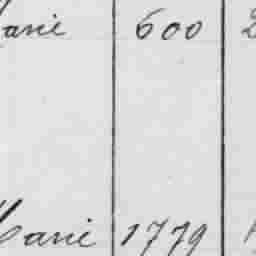 arie 600
Marie 1779